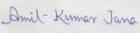 Amil-Kumar Jana